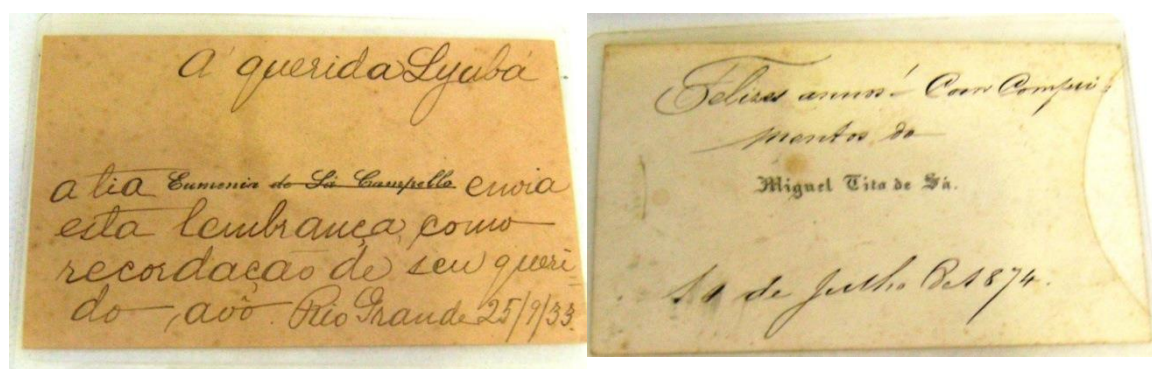 A' querida Lyubá
a tia Eumenia de Sá Campello envia
esta lembrança, como
recordação de seu queri-
do avô. Rio Grande 25/9/33
Felizes annos! Com Compri-
mentos de
Miguel Tito de Sá.
de Julho de 1874.